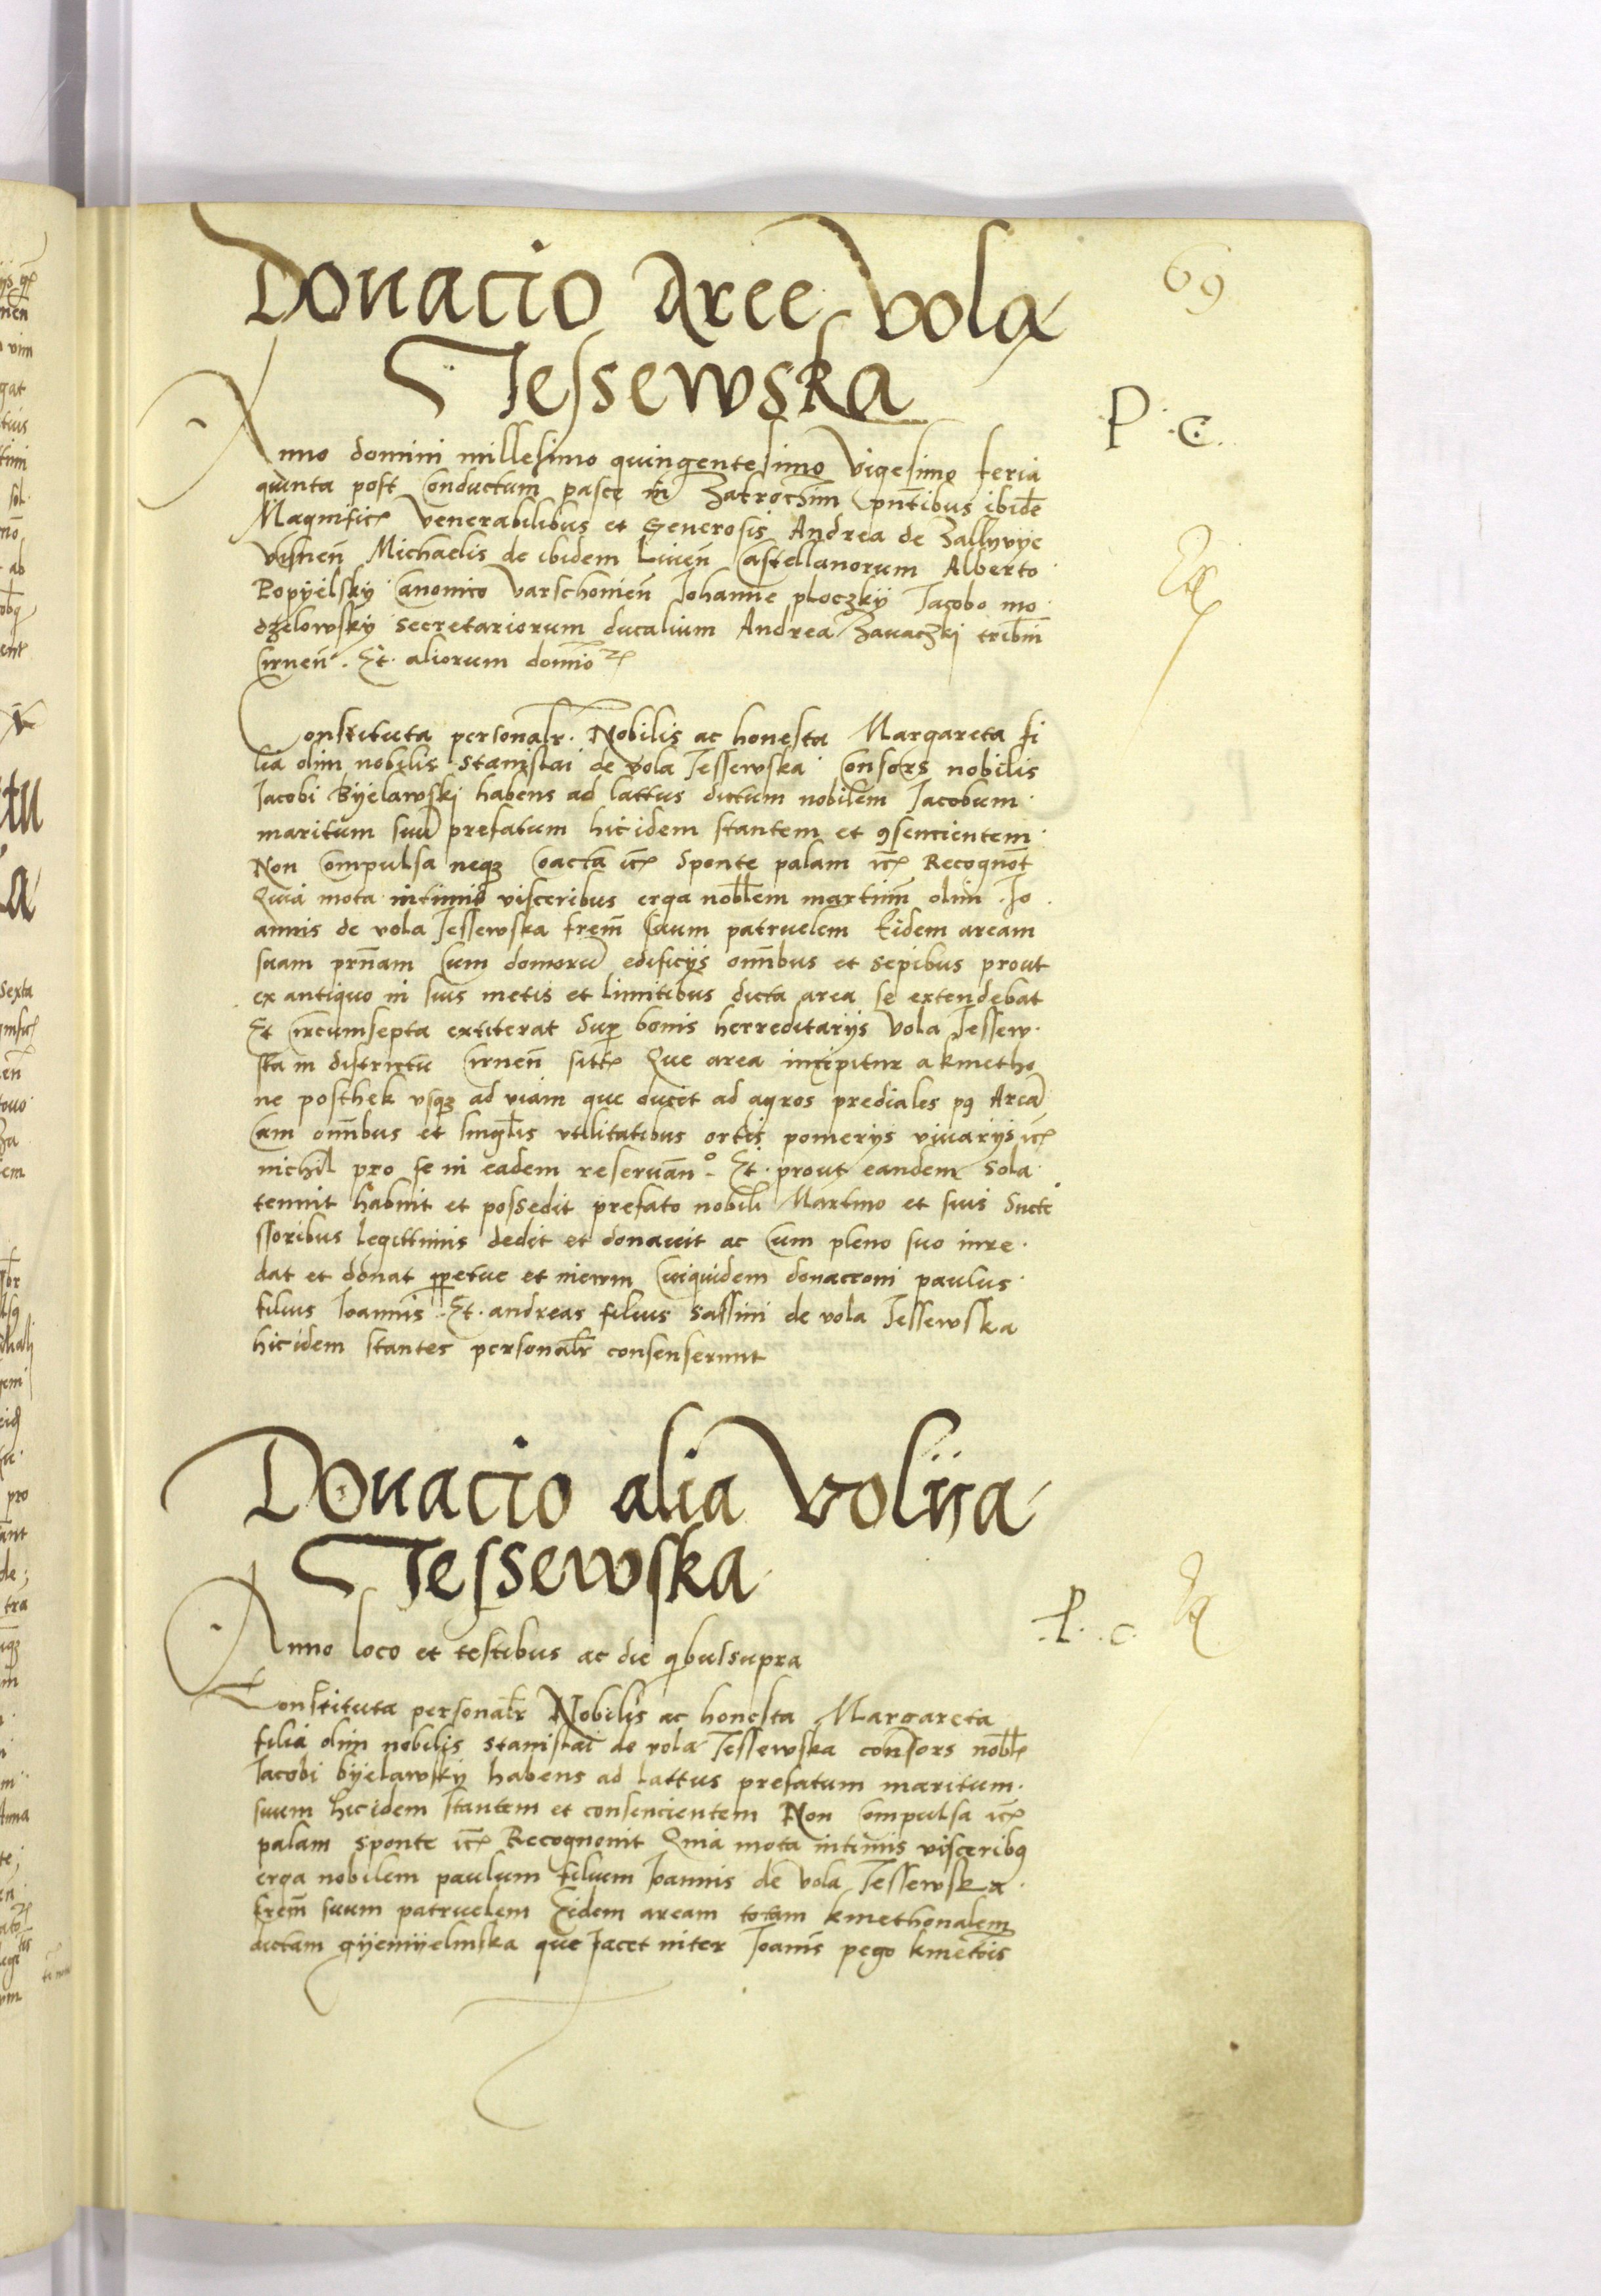 69
Donacio Aree Vola
Tessewska
P. c.
Anno domini millesimo quingentesimo vigesimo feria
quinta post Conductum pasce in Zatroczim pn̄tibus ibidē
Magnificꝭ Venerabilibus et Generosis Andrea de Zallyvye
Visnen̄ Michaelis de ibidem Liuen̄ Castellanorum Alberto
Popyelsky Canonico Varschonien̄ Johanne ploczky Jacobo mo
dzelowsky secretariorum ducalium Andrea Zauaczkj tribun̄
Cirnen̄. Et. aliorum domioꝝ
Constituta personalr̄. Nobilis ac honesta Margareta fi
lia olim nobilis Stanislai de vola Tessewska Consors nobilis
Jacobi Byelawskj habens ad lattus dictum nobilem Jacobum
maritum suū prefatum hic idem stantem et ꝯsencientem
Non Compulsa neqꝫ Coacta ic̄ꝭ Sponte palam ic̄ꝭ Recogno̅t
Quia mota intimis visceribus erga nob̄lem martinū olim Jo
annis de vola Tessewska frem̄ suum patruelem Eidem aream
suam prn̄am Cum domorū edificijs om̄ibus et sepibus prout
ex antiquo in suis metis et limitibus dicta area se extendebat
Et Circumsepta extiterat Sup̱ bonis herreditarijs Vola Tessew
ska in districtu Cirnen̄ sittꝭ Que area incipitur a kmetho
ne posthek vsqꝫ ad viam que ducit ad agros prediales pꝯ Areā
Cum om̄ibus et singl̄is vtilitatibus ortis pomerijs viuarijs ic̄ꝭ
nichil pro se in eadem reseruan̄º. Et. prout eandem Sola
tenuit habuit et possedit prefato nobili Martino et suis Succe
ssoribus legittimis dedit et donauit ac Cum pleno suo iure
dat et donat ꝑpetue et in ewm Cuiquidem donaccioni paulus
filius Joannis. Et. andreas filius Sassini de vola Tessewska
hic idem stantes personalr̄ consenserunt
Donacio alia Volyja
Tessewska
P. c.
Anno loco et testibus ac die qibus supra
Constituta personalr̄ Nobilis ac honesta Margareta
filia olim nobilis Stanislai de vola Tessewska consors nob̄lꝭ
Jacobi byelawsky habens ad lattus prefatum maritum
suum hic idem stantem et consencientem Non Compulsa ic̄ꝭ
palam Sponte ic̄ꝭ Recognouit Quia mota intimis visceribꝯ
erga nobilem paulum filium Joannis de Vola Tessewska
frem̄ suum patruelem Eidem aream totam kmethonalem
dictam gyemyelinska que Jacet inter Joanis pego kmetois